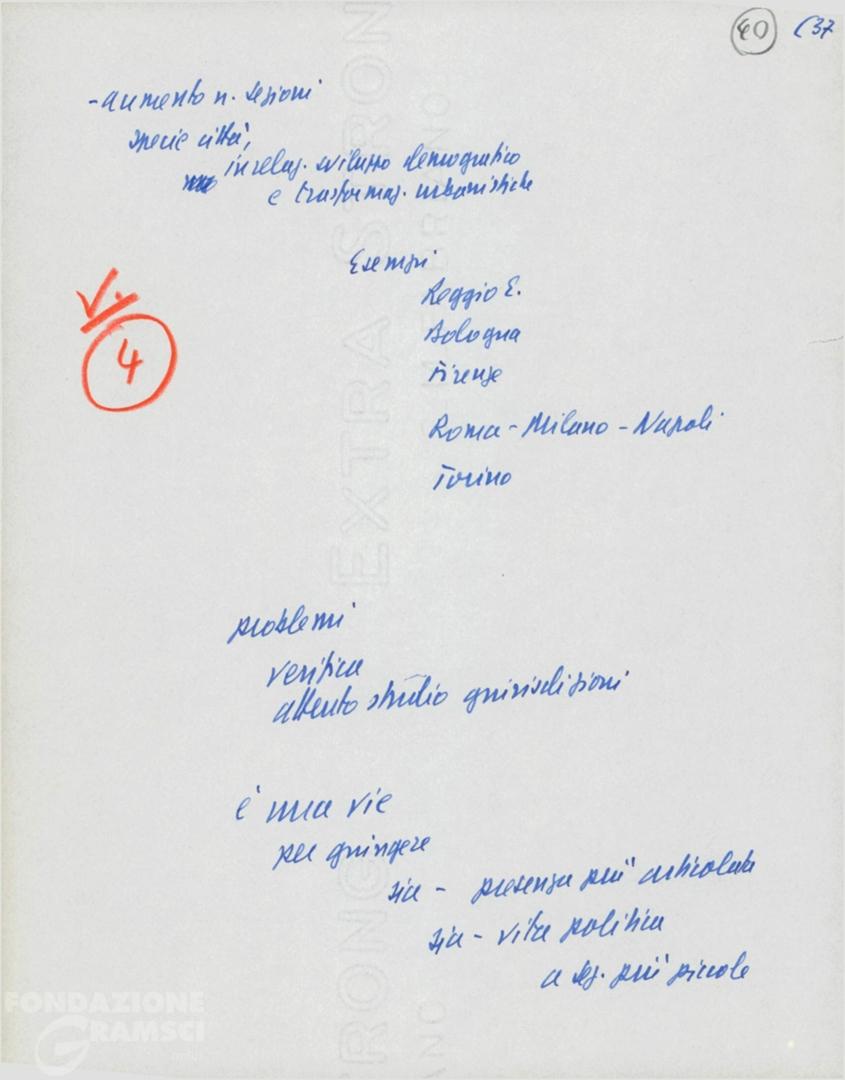 40 (37
- aumento n. sezioni
specie città,
in relaz. sviluppo demografico
e trasformaz. urbanistiche
Esempi
Reggio E.
Bologna
Firenze
V.
4
Roma - Milano - Napoli
Torino
problemi
verifica
attento studio giurisdizioni
è una via
per giungere
sia - presenza più articolata
sia - vita politica
a sez. più piccole
FONDAZIONE
GRAMSCI
EXTRA STRONG